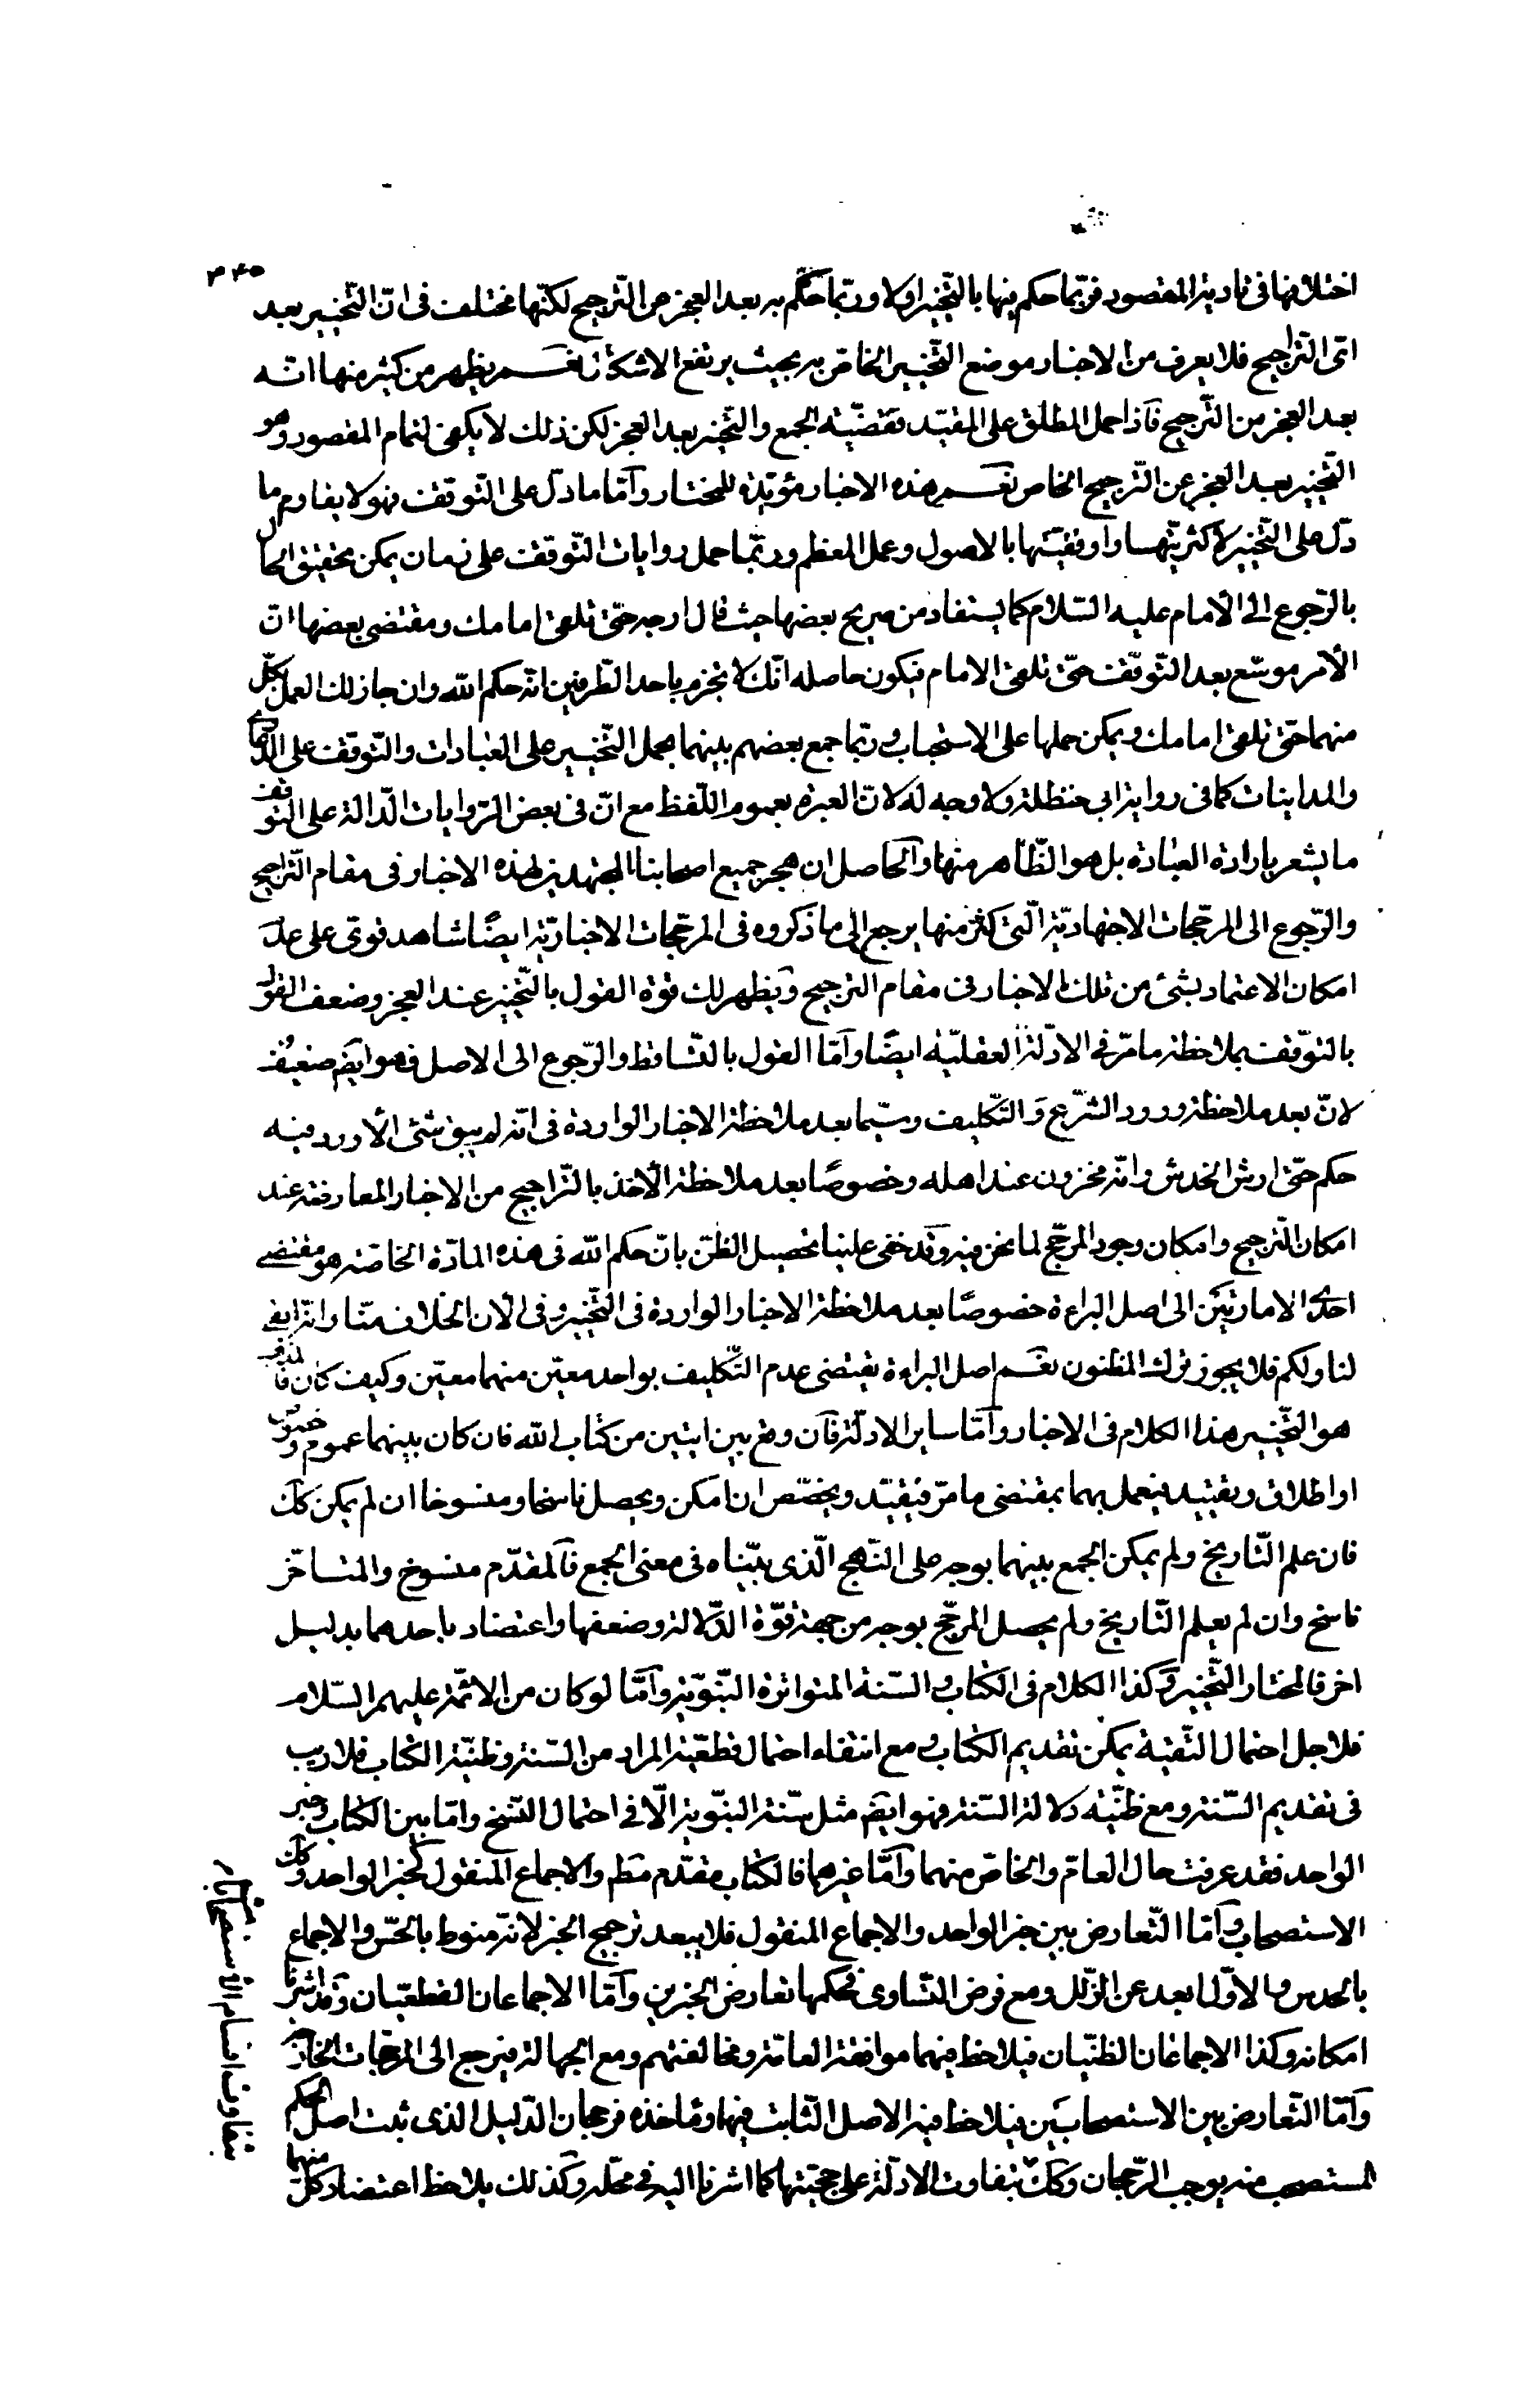 ٣٤٥
اختلافها فى تادية المقصود فربّما حكم فيها بالتّخيير اولا وربّما حكم به بعد العجز عن التّرجيح لكنّها مختلفة فى انّ التّخيير بعد
اىّ التّراجيح فلا يعرف من الاخبار موضع التّخيير الخاصّ به بحيث يرتفع الاشكال نعم يظهر من كثير منها انّه
بعد العجز من التّرجيح فاذا حمل المطلق على المقيّد فقضيّة الجمع والتّخيير بعد العجز لكن ذلك لا يكفى لتمام المقصود وهو
التّخيير بعد العجز عن التّرجيح الخاص نعم هذه الاخبار مؤيّدة للمختار وامّا ما دلّ على التّوقف فهو لا يقاوم ما
دلّ على التّخيير لاكثريّتها واوفقيّتها بالاصول وعمل المعظم وربّما حمل روايات التّوقف على زمان يمكن تحقيق الحال
بالرّجوع الى الامام عليه السّلام كما يستفاد من صريح بعضها حيث قال ارجه حتّى تلقى امامك ومقتضى بعضها انّ
الأمر موسّع بعد التّوقّف حتّى تلقى الامام فيكون حاصله انّك لا تجزم باحد الطّرفين انّه حكم اللّه وان جاز لك العمل بكلّ
منهما حتّى تلقى امامك ويمكن حملها على الاستحباب وربّما جمع بعضهم بينهما بحمل التّخيير على العبادات والتّوقف على الدّعاوى
والمداينات كما فى رواية ابى حنظلة ولا وجه له لانّ العبرة بعموم اللّفظ مع انّ فى بعض الرّوايات الدّالة على التوقف
ما يشعر بارادة العبادة بل هو الظّاهر منها والحاصل ان هجر جميع اصحابنا المجتهدين لهذه الاخبار فى مقام التّراجيح
والرّجوع الى المرجّحات الاجتهاديّة الّتى كثر منها يرجع إلى ما ذكروه فى المرجّحات الاخباريّة ايضًا شاهد قوىّ على عدم
امكان الاعتماد بشئ من تلك الاخبار فى مقام الترجيح ويظهر لك قوّة القول بالتّخيير عند العجز وضعف القول
بالتوّقف بملاحظة ما مرّ فى الادلّة العقليّة ايضًا وامّا القول بالتّساقط والرّجوع الى الاصل فهو ايضً ضعيف
لانّ بعد ملاحظة ورود الشّرع والتّكليف وسيّما بعد ملاحظة الاخبار الواردة فى انّه لم يبق شئ الّا ورد فيه
حكم حتّى ارش الخدش وانّه مخزون عند اهله وخصوصًا بعد ملاحظة الأخذ بالتّراجيح من الاخبار المعارضة عند
امكان التّرجيح وامكان وجود المرجّح لما نحن فيه وقد خفى علينا تحصيل الظّن بانّ حكم اللّه فى هذه المادّة الخاصّة هو مقتضى
احدى الامارتين الى اصل البراءة خصوصًا بعد ملاحظة الاخبار الواردة فى التّخيير وفى الان الخلاف منّا وانّه ابقى
لنا ولكم فلا يجوز ترك المظنون نعم اصل البراءة يقتضى عدم التّكليف بواحد معيّن منهما معيّن وكيف كان فالمذهب
هو التّخيير هذا الكلام فى الاخبار وامّا ساير الادلّة فان وقع بين ايتين من كتاب اللّه فان كان بينهما عموم وخصوص
او اطلاق وتقييد فيعمل بهما بمقتضى ما مرّ فيقيّد ويخصّص ان امكن ويحصل ناسخا ومنسوخا ان لم يمكن كك
فان علم التّاريخ ولم يمكن الجمع بينهما بوجه على النّهج الّذى بيّناه فى معنى الجمع فالمقدّم منسوخ والمتاخّر
ناسخ وان لم يعلم التّاريخ ولم يحصل المرجّح بوجه من جهة قوّة الدّلالة وضعفها واعتضاد باحدهما بدليل
اخر فالمختار التّخيير وكذا الكلام فى الكتاب والسّنة المتواترة النّبويّة وامّا لو كان من الائمّة عليهم السّلام
فلاجل احتمال التّقية يمكن تقديم الكتاب ومع انتفاء احتمال قطعيّة المراد من السّنة وظنيّة الكتاب فلا ريب
فى تقديم السّنة ومع ظنّيّة دلالة السّنة فهو ايضً مثل سنّة النبّوية الّا فى احتمال النّسخ وامّا بين الكتاب وخبر
الواحد فقد عرفت حال العامّ والخاصّ منهما وامّا غيرهما فالكتاب مقدّم مط والاجماع المنقول كخبر الواحد وكك
الاستصحاب وامّا التّعارض بين خبر الواحد والاجماع المنقول فلا يبعد ترجيح الخبر لانّه منوط بالحسّ والاجماع
بالحدس والاوّل ابعد عن الزّلل ومع فرض التّساوى فحكمها تعارض الخبرين وامّا الاجماعان القطعيّان وقد اشرنا
امكانه وكذا الاجماعان الظنّيان فيلاحظ فيهما موافقة العامّة ومخالفتهم ومع الجهالة فيرجع الى المرجّحات الخارجية
وامّا التّعارض بين الاستصحابين فيلاحظ فيه الاصل الثّابت فيها وماخذه فرجحان الدّليل الذى ثبت اصل الحكم
المستصحب منه يوجب الرّجحان وكك بتفاوت الادلّة على حجّيّتها كما اشرنا اليه فى محلّه وكذلك يلاحظ اعتضاد كلّ منهما
بتفاوت اقسام الاستصحاب